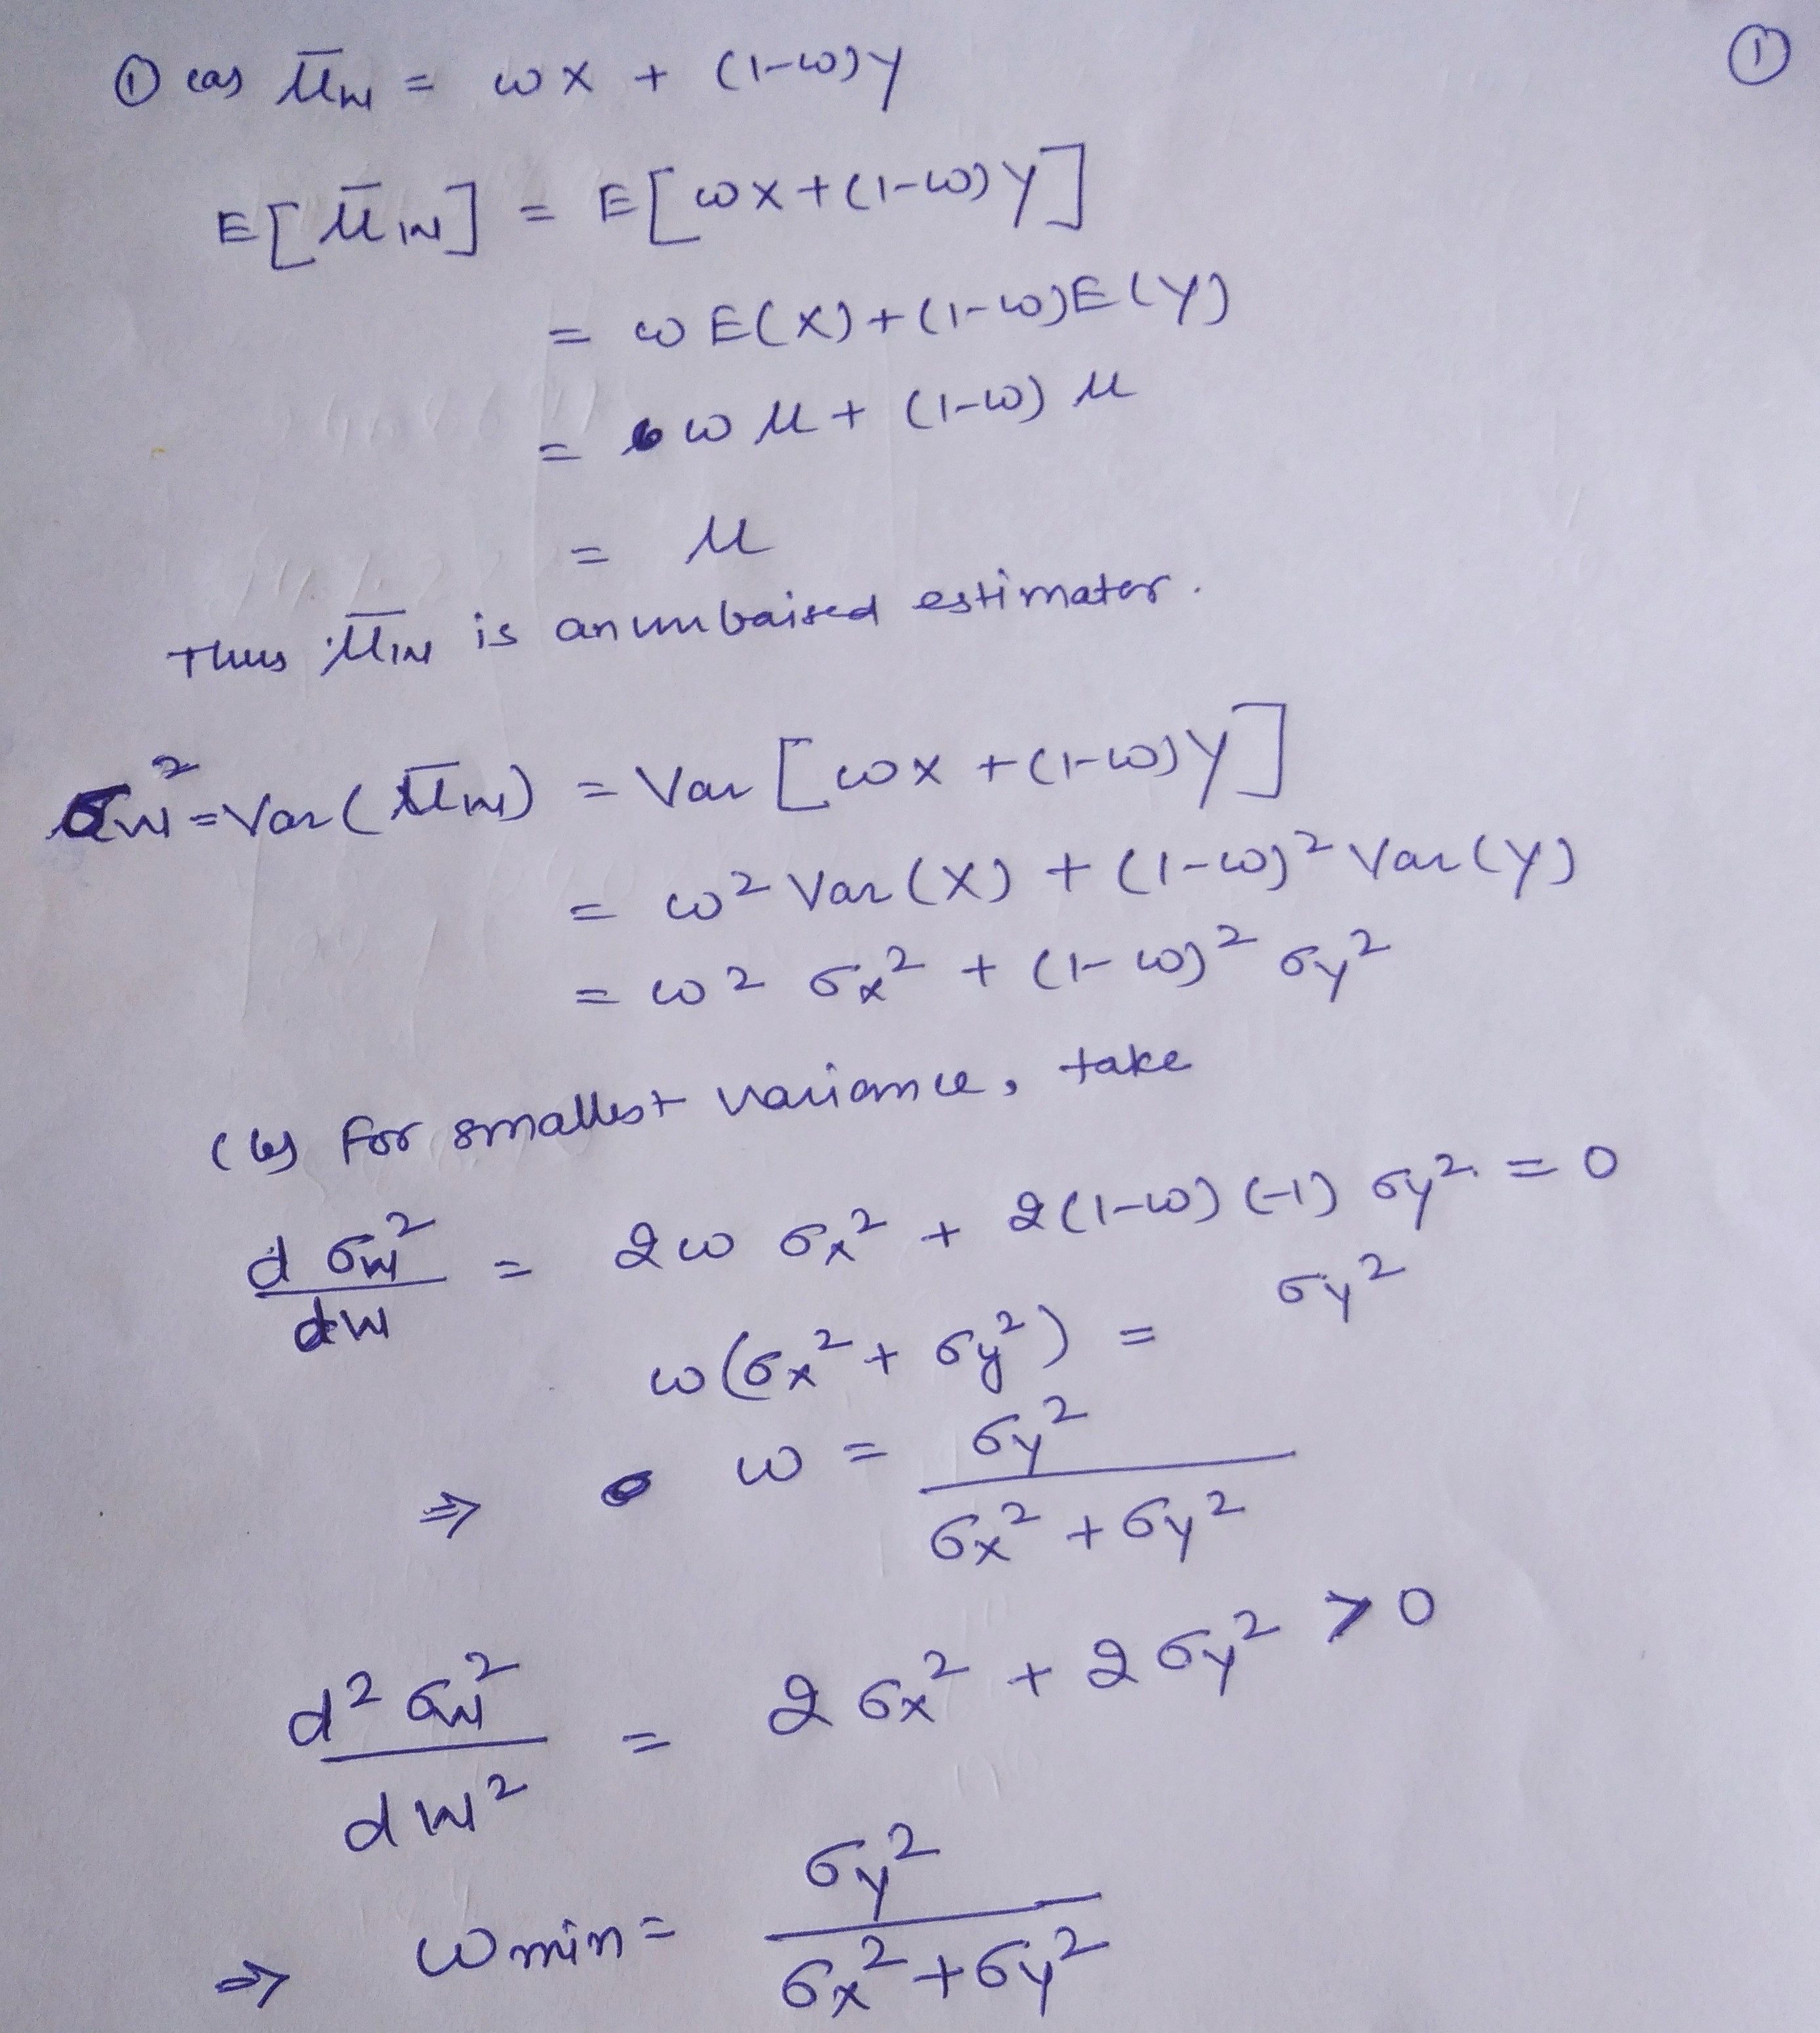 ① (a) μ̄w = ωX + (1-ω)Y
①
E[μ̄w] = E[ωX+(1-ω)Y]
= ωE(X)+(1-ω)E(Y)
= ωμ + (1-ω)μ
= μ
Thus μ̄w is an unbaised estimator.
σw² = Var(μ̄w) = Var[ωX+(1-ω)Y]
= ω² Var(X) + (1-ω)² Var(Y)
= ω² σx² + (1-ω)² σy²
(b) For smallest variance, take
dσw²/dw = 2ω σx² + 2(1-ω)(-1) σy² = 0
ω(σx² + σy²) = σy²
⇒ ω = σy²/(σx² + σy²)
d²σw²/dw² = 2σx² + 2σy² > 0
⇒ ωmin = σy²/(σx²+σy²)